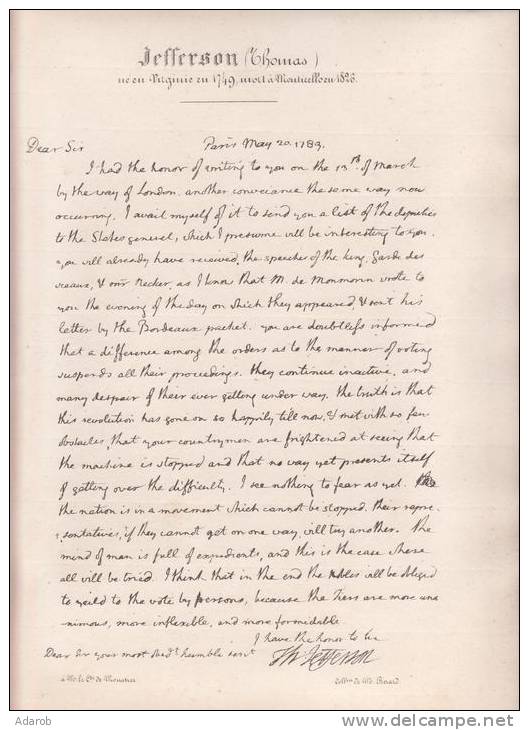 Jefferson (Thomas)
né en Virginie en 1749, mort à Monticello en 1826.
Dear Sir Paris May 20. 1789.
I had the honor of writing to you on the 13th. of March
by the way of London. another conveiance the same way now
occurring, I avail myself of it to send you a list of the deputies
to the States general, which I presume will be interesting to you.
you will already have received the speeches of the king, Garde des
sceaux, & mr Necker, as I know that M. de Monmorin wrote to
you the evening of the day on which they appeared, & sent his
letter by the Bordeaux packet. you are doubtless informed
that a difference among the orders as to the manner of voting
suspends all their proceedings. they continue inactive, and
many despair of their ever getting under way. the truth is that
this revolution has gone on so happily till now, & met with so few
obstacles, that your countrymen are frightened at seeing that
the machine is stopped and that no way yet presents itself
of getting over the difficulty. I see nothing to fear as yet.
the nation is in a movement which cannot be stopped. their repre-
sentatives, if they cannot get on one way, will try another. the
mind of man is full of expedients, and this is the case where
all will be tried. I think that in the end the nobles will be obliged
to yeild to the vote by persons, because the Tiers are more una
nimous, more inflexible, and more formidable.
I have the honor to be
Dear Sir your most obedt. humble servt Th: Jefferson
à Mr. le Cte. de Moustier
Collon. de Md.
Adarob
www.delcampe.net